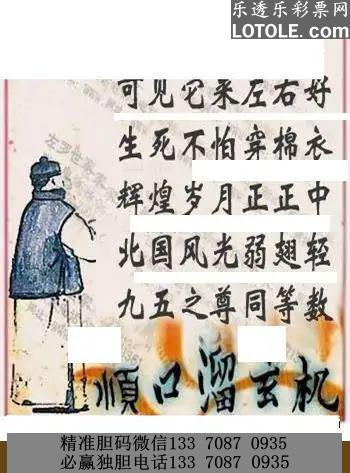 乐透乐彩票网
LOTOLE.COM
可见它来左右好
生死不怕穿棉衣
辉煌岁月正正中
北国风光弱翅轻
九五之尊同等数
顺口溜玄机
精准胆码微信133 7087 0935
必赢独胆电话133 7087 0935